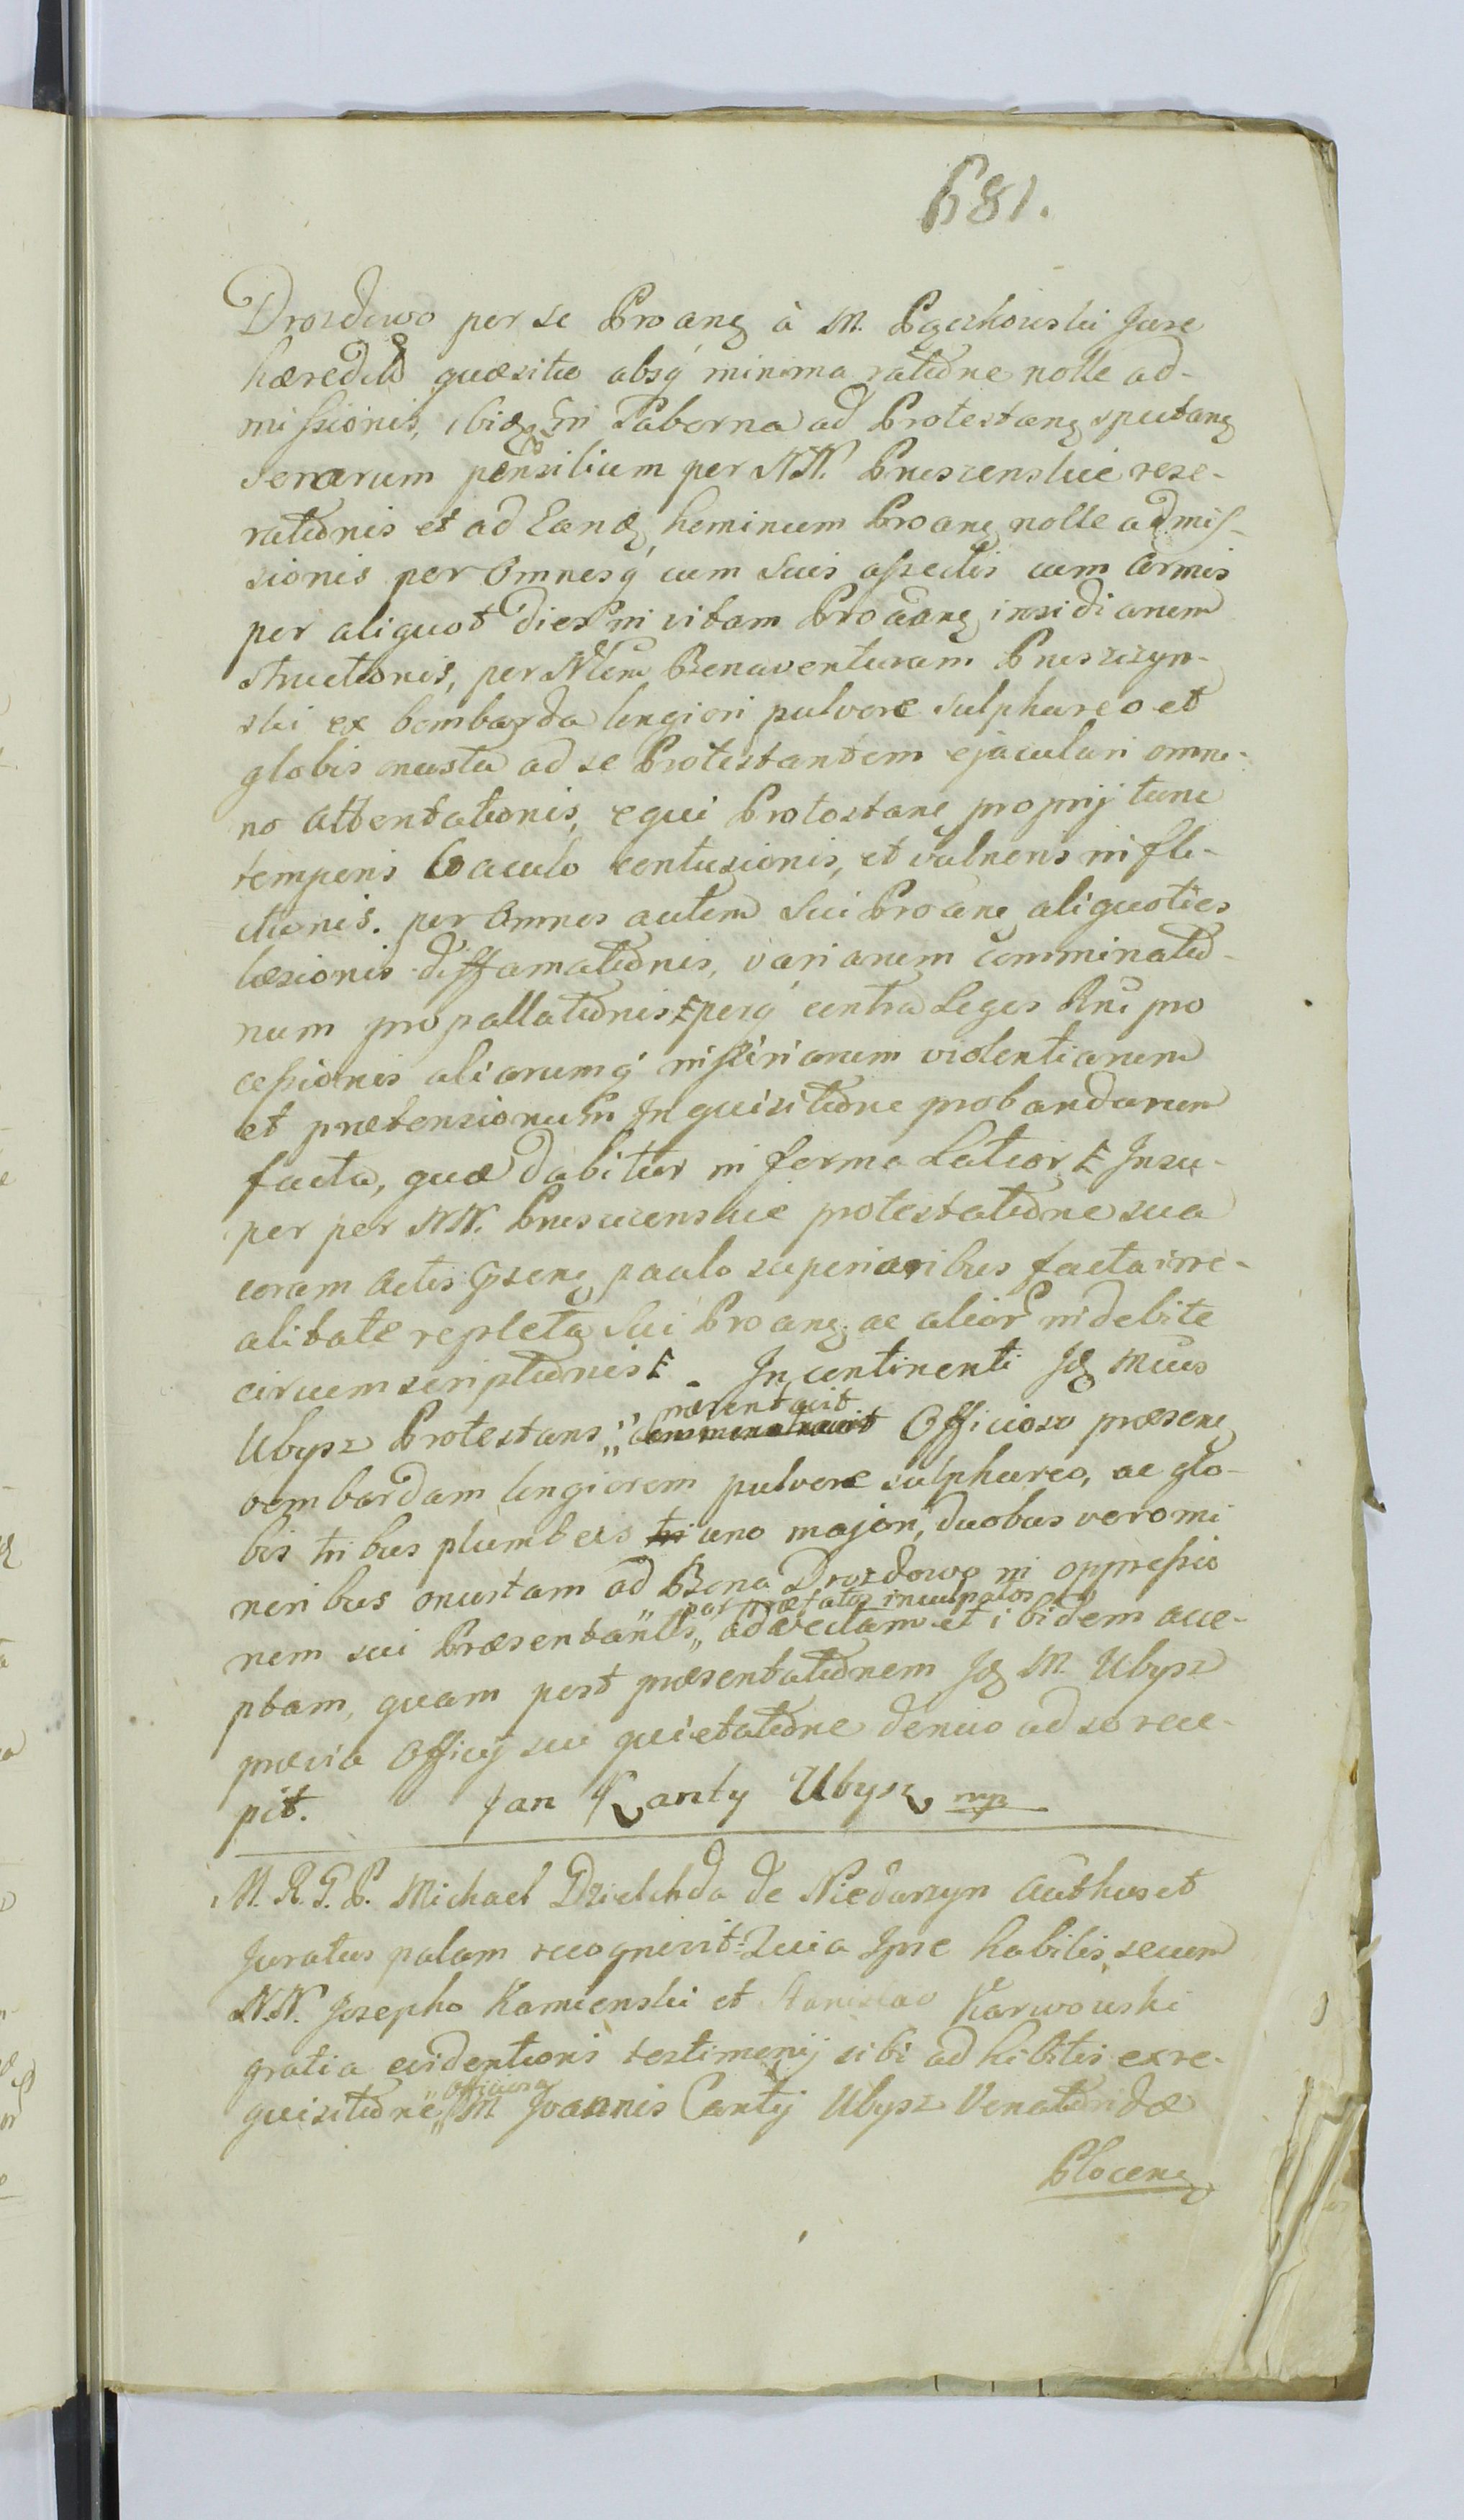 681.
Drozdowo per se Proang à M. Pączkowski Jure
hæredit quæsito absq minima ratione nolle ad-
missionis, ibidq in Taberna ad Protestang sputang
serarum pensilium per NN. Pruszenskie rese-
rationis et ad Eandg hominum Proang nolle admis-
sionis per Omnesq cum suis asseclis cum armis
per aliquot dies in vitam Proang insidiarum
structionis, per Nlem Bonaventuram Pruszczyn-
ski ex bombarda longiori pulvere sulphureo et
globis onusta ad se Protestantem ejaculari omni-
no attentationis, equi Protestang proprij tunc
temporis baculo contusionis, et vulneris infli-
ctionis. per Omnes autem sui Proang aliquoties
læsionis diffamationis, variarum comminatio-
num propallationis perq contra Leges Rni pro
cessionis aliarumq injuriarum violentiarum
et prætensionum Inquisitione probandarum
facta, quæ dabitur in forma Latiori Insu-
per per NN. Pruszczenskie protestatione sua
coram Actis Præseng paulo superioribus facta irre-
alitate repleta sui Proang ac alior indebite
circumscriptionis Incontinenti Idg Mcus
Ubysz Protestans præsentavit Officioso præseng
bombardam longiorem pulvere sulphureo, ac glo-
bis tribus plumbeis tri uno majori, duobus vero mi
noribus onustam ad Bona Drozdowo in oppressio
nem sui Præsentantis per præfatos inculpatos advectam et ibidem acce-
ptam, quam post præsentationem Idg M. Ubysz
prævia Officij sui quietatione denuo ad se rece-
pit. Jan Kanty Ubysz mp
M. R. G. P. Michael Dzielchda de Niedarzyn Authus et
Juratus palam recognovit: Quia Ipse habilis secum
N.N. Josepho Kamienski et Stanislao Karwowski
gratia evidentioris testimonij sibi adhibitis ex re-
quisitione officiosa M Joannis Cantij Ubysz Venatoridæ
Ploceng